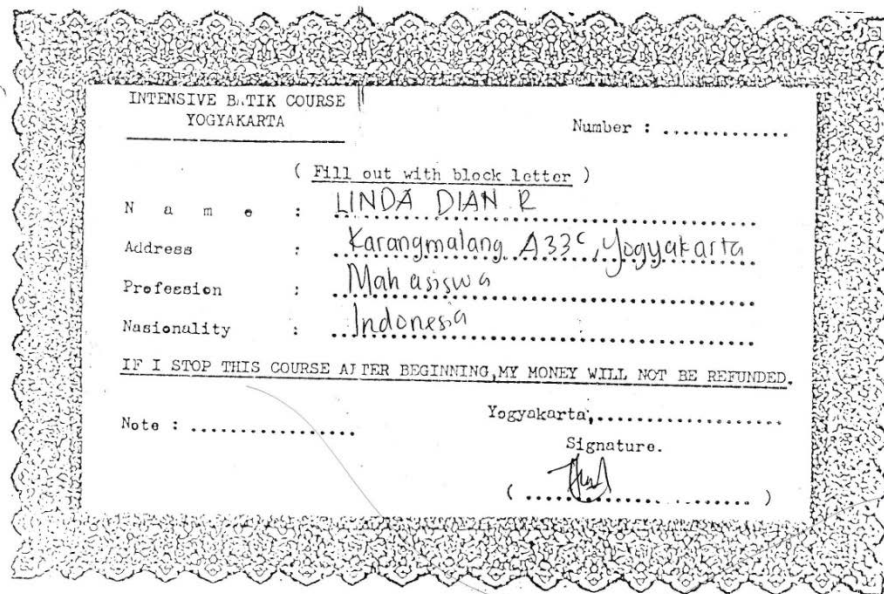 INTENSIVE B.TIK COURSE
YOGYAKARTA
Number : .............
( Fill out with block letter )
N a m e : LINDA DIAN R
Address : Karangmalang A33c, Yogyakarta
Profession : Mahasiswa
Nasionality : Indonesia
IF I STOP THIS COURSE AFTER BEGINNING,MY MONEY WILL NOT BE REFUNDED.
Note : .................
Yogyakarta,.................
Signature.
( ....................... )